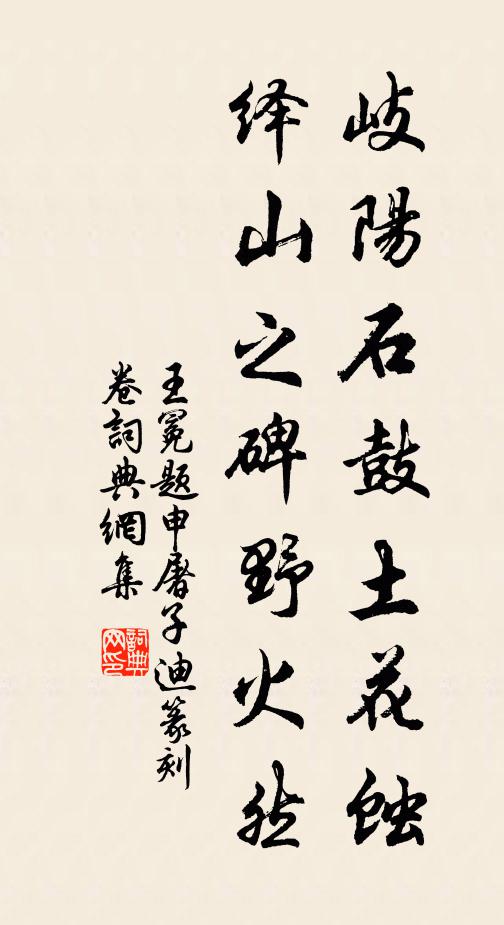 岐陽石鼓土花蝕
绎山之碑野火然
王冕題申屠子迪篆刻
卷詞典網集
詞典網印